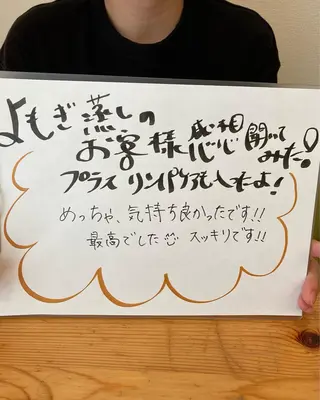 よもぎ蒸しの
お客様感想聞いて
みた！
プライリンパケアもしたよ！
めっちゃ、気持ち良かったです!!
最高でした☺ スッキリです!!